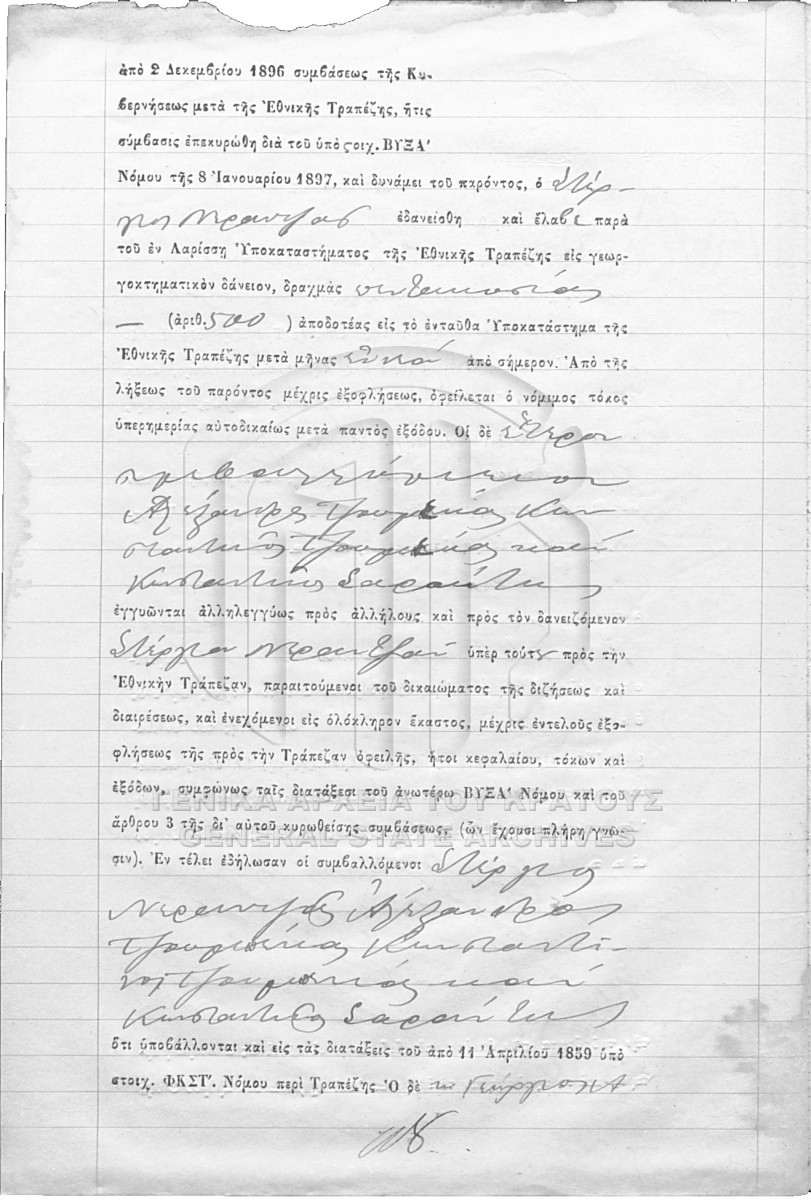 ἀπὸ 2 Δεκεμβρίου 1896 συμβάσεως τῆς Κυ-
βερνήσεως μετὰ τῆς Ἐθνικῆς Τραπέζης, ἥτις
σύμβασις ἐπεκυρώθη διὰ τοῦ ὑπὸ στοιχ. ΒΥΞΑ'
Νόμου τῆς 8 Ἰανουαρίου 1897, καὶ δυνάμει τοῦ παρόντος, ὁ Στέρ-
γιος Νεραντζᾶς ἐδανείσθη καὶ ἔλαβε παρὰ
τοῦ ἐν Λαρίσσῃ Ὑποκαταστήματος τῆς Ἐθνικῆς Τραπέζης εἰς γεωρ-
γοκτηματικὸν δάνειον, δραχμὰς πεντακοσίας
— (ἀριθ. 500 ) ἀποδοτέας εἰς τὸ ἐνταῦθα Ὑποκατάστημα τῆς
Ἐθνικῆς Τραπέζης μετὰ μῆνας ἐννέα ἀπὸ σήμερον. Ἀπὸ τῆς
λήξεως τοῦ παρόντος μέχρις ἐξοφλήσεως, ὀφείλεται ὁ νόμιμος τόκος
ὑπερημερίας αὐτοδικαίως μετὰ παντὸς ἐξόδου. Οἱ δὲ ἕτεροι
Ἀλέξανδρος Κων
σταντῖνος καὶ
Κωνσταντῖνος Σαράντης
ἐγγυῶνται ἀλληλεγγύως πρὸς ἀλλήλους καὶ πρὸς τὸν δανειζόμενον
Στέργιον Νεραντζᾶν ὑπὲρ τούτου πρὸς τὴν
Ἐθνικὴν Τράπεζαν, παραιτούμενοι τοῦ δικαιώματος τῆς διζήσεως καὶ
διαιρέσεως, καὶ ἐνεχόμενοι εἰς ὁλόκληρον ἕκαστος, μέχρις ἐντελοῦς ἐξο-
φλήσεως τῆς πρὸς τὴν Τράπεζαν ὀφειλῆς, ἤτοι κεφαλαίου, τόκων καὶ
ἐξόδων, συμφώνως ταῖς διατάξεσι τοῦ ἀνωτέρω ΒΥΞΑ' Νόμου καὶ τοῦ
ΓΕΝΙΚΑ ΑΡΧΕΙΑ ΤΟΥ ΚΡΑΤΟΥΣ
ἄρθρου 3 τῆς δι' αὐτοῦ κυρωθείσης συμβάσεως, (ὧν ἔχουσι πλήρη γνῶ-
GENERAL STATE ARCHIVES
σιν). Ἐν τέλει ἐδήλωσαν οἱ συμβαλλόμενοι Στέργιος
Νεραντζᾶς Ἀλέξανδρος
Κωνσταντῖ-
νος καὶ
Κωνσταντῖνος Σαράντης
ὅτι ὑποβάλλονται καὶ εἰς τὰς διατάξεις τοῦ ἀπὸ 11 Ἀπριλίου 1859 ὑπὸ
στοιχ. ΦΚΣΤ'. Νόμου περὶ Τραπέζης Ὁ δὲ